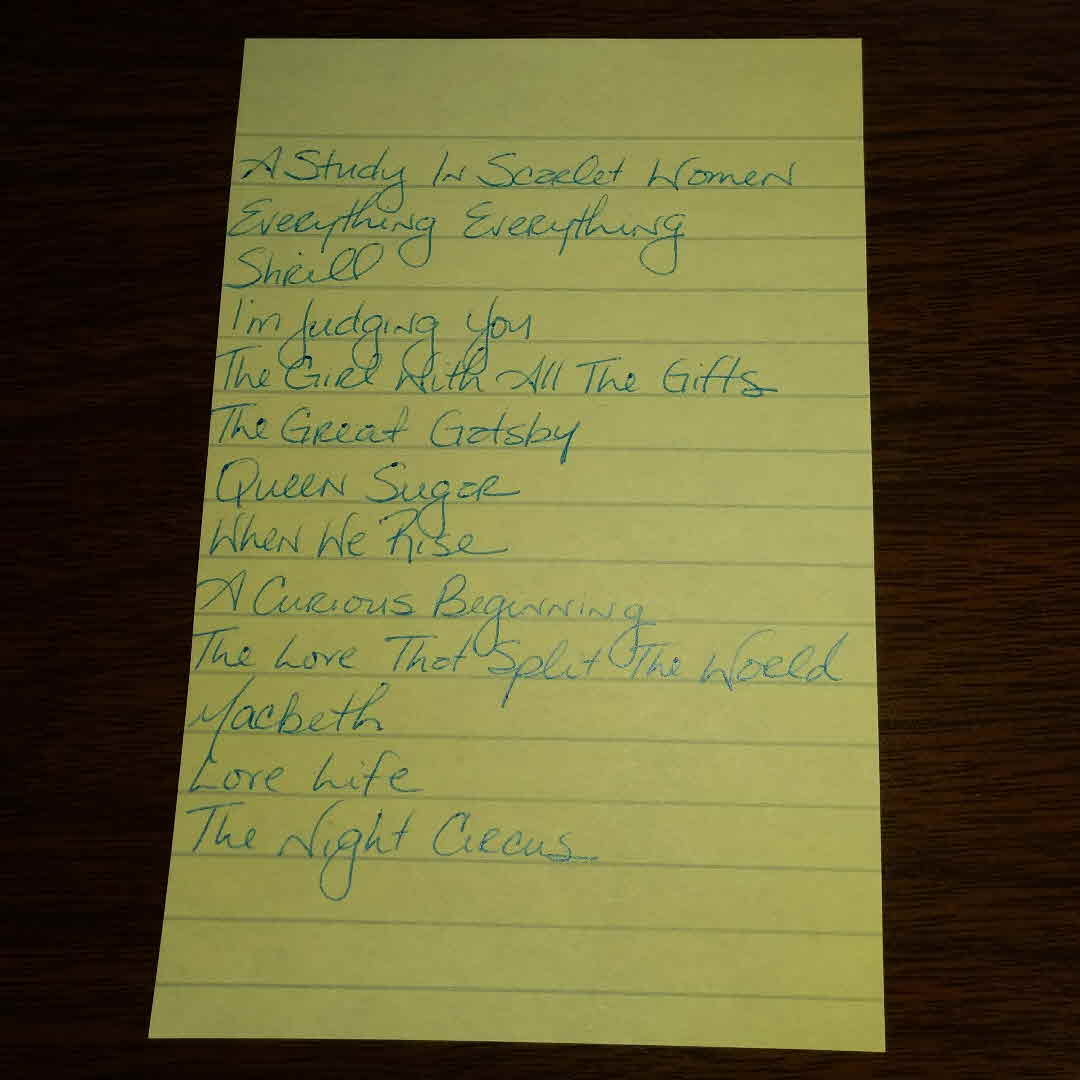 A Study In Scarlet Women
Everything Everything
Shrill
I'm Judging You
The Girl With All The Gifts
The Great Gatsby
Queen Sugar
When We Rise
A Curious Beginning
The Love That Split The World
Macbeth
Love Life
The Night Circus